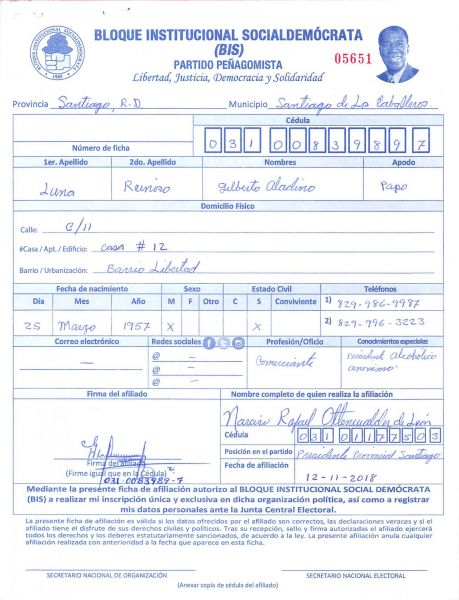 BLOQUE INSTITUCIONAL SOCIALDEMÓCRATA
(BIS)
PARTIDO PEÑAGOMISTA
Libertad, Justicia, Democracia y Solidaridad
05651
BLOQUE INSTITUCIONAL SOCIALDEMOCRATA
1989
Provincia Santiago, R.D Municipio Santiago de Los Caballeros
Número de ficha Cédula
031 0083989 7
1er. Apellido 2do. Apellido Nombres Apodo
Luna Reinoso Gilberto Aladino Papo
Domicilio Físico
Calle: C/11
#Casa / Apt. / Edificio: Casa # 12
Barrio / Urbanización: Barrio Libertad
Fecha de nacimiento Sexo Estado Civil Teléfonos
Día Mes Año M F Otro C S Conviviente 1) 829-986-9987
25 Marzo 1957 X X 2) 829-996-3223
Correo electrónico Redes sociales Profesión/Oficio Conocimientos especiales
— @ — Comerciante Presidente Alcohólico anonimo
@ —
@ —
Firma del afiliado Nombre completo de quien realiza la afiliación
Narciso Rafael Ottenwalder de León
Cédula
031 0117750 3
Posición en el partido Presidente Provincial Santiago
Firma del afiliado
(Firme igual que en la Cédula)
031-0083989-7
Fecha de afiliación 12-11-2018
Mediante la presente ficha de afiliación autorizo al BLOQUE INSTITUCIONAL SOCIAL DEMÓCRATA
(BIS) a realizar mi inscripción única y exclusiva en dicha organización política, así como a registrar
mis datos personales ante la Junta Central Electoral.
La presente ficha de afiliación es válida si los datos ofrecidos por el afiliado son correctos, las declaraciones veraces y si el
afiliado tiene el disfrute de sus derechos civiles y políticos. Tras su recepción, sello y firma autorizados el afiliado ejercerá
todos los derechos y los deberes estatutariamente sancionados, de acuerdo a la ley. La presente afiliación anula cualquier
afiliación realizada con anterioridad a la fecha que aparece en esta ficha.
SECRETARIO NACIONAL DE ORGANIZACIÓN SECRETARIO NACIONAL ELECTORAL
(Anexar copia de cédula del afiliado)